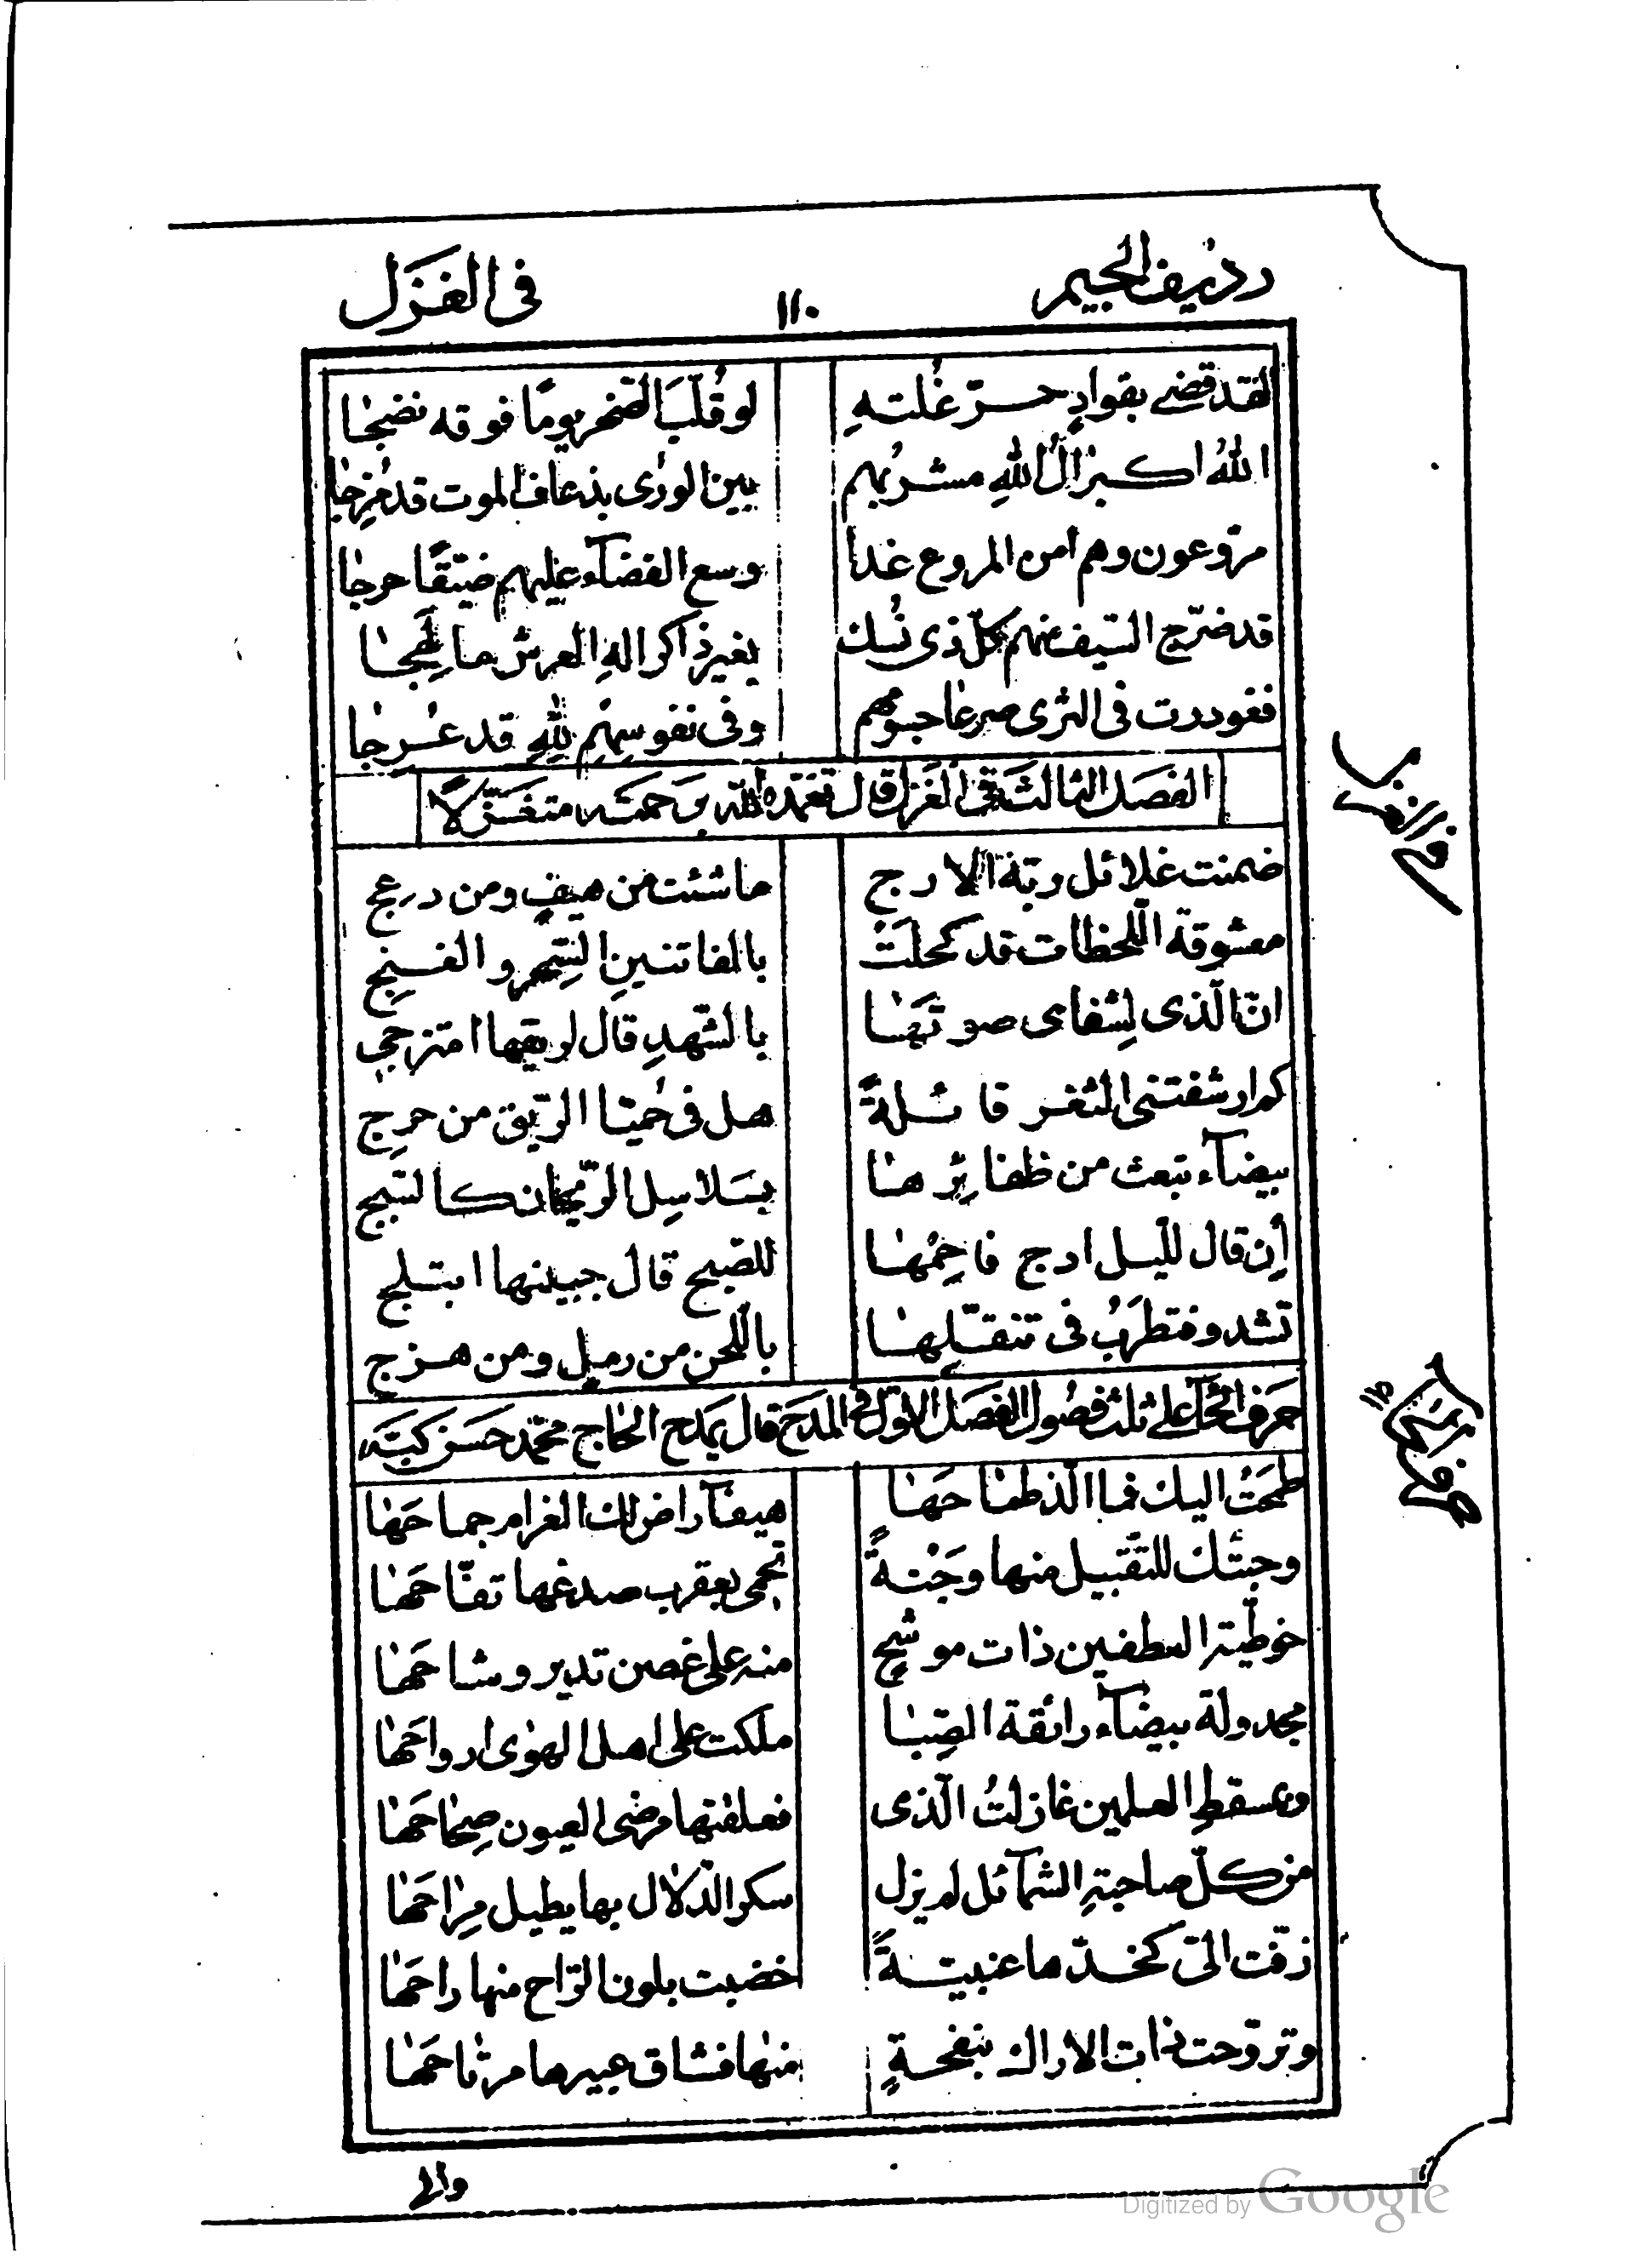 رديف الجيم ١١٠ فى الغزل
لقد قضى بفوادٍ حرّ غُلتهِ لو قُلّبَ الصّخر يومًا فوقه نضجا
اللهُ اكبر الُ اللهِ مشربُهم بين الورى بذعاف الموت قد مُزِجا
مروّعون وهم امن المروع غدا وسع الفضآء عليهم ضيّقًا حرجا
قد ضرّج السّيف منهم كلّ ذى نُسك بغير ذاكر الهِ العرش ما لَهِجا
فغودرت فى الثرى صرعا جسومهم وفى نفوسِهِم للهِ قد عُرجا
الفصل الثالث فى الغزل قال تغمّده الله برحمته متغزّلًا
فى الغزل
ضمنت غلائل ربّة الارج ما شئت من هيفٍ ومن دعج
معشوقة اللّحظات قد كحلَتْ بالفاتنينِ السّحر والغنجِ
انّ الّذى لِشفاى صوّتَها بالشّهدِ قال لريقها امتزجى
كم ارشفتنى الثغر قائلةً هل فى حُميّا الرّيق من حرجِ
بيضآء تبعث من ظفائرِها بسَلاسِل الرّيحان كالسّبج
إن قال للّيل ادج فاحِمُها للصّبح قال جبينها ابتلج
تشدو فتطرَبُ فى تنقّلِها باللّحن من رملٍ ومن هزج
حرف الحآء على ثلث فصول الفصل الاوّل فى المدح قال يمدح الحاج محمّد حسن كبّه
حرف الحآء
طمَحَتْ اليك فما الّذ طماحَها هيفآء راض لك الغرام جماحَها
وجبتك للتّقبيل منها وَجْنةً تحمى بعقرب صدغها تفّاحَها
خوطيّة العطفين ذات موشّحٍ منه على غصن تدير وشاحَها
مجدولة بيضآء رائقة الصِّبا ملكت على اهل الهوى ارواحَها
وبمسقطِ العلمين غازلتُ الّذى فعلقتها مرضى العيون صِحاحَها
من كلّ صاحيةِ الشمآئل لم يزل سكر الدّلال بها يطيل مِزاحَها
زفّت الىّ كخدّها عنبيّةً خضبت بلون الرّاح منها راحَها
وتروّحت ذات الاراك بنفحةٍ منها فشاق عبيرها مرتاحَها
والى
Digitized by Google